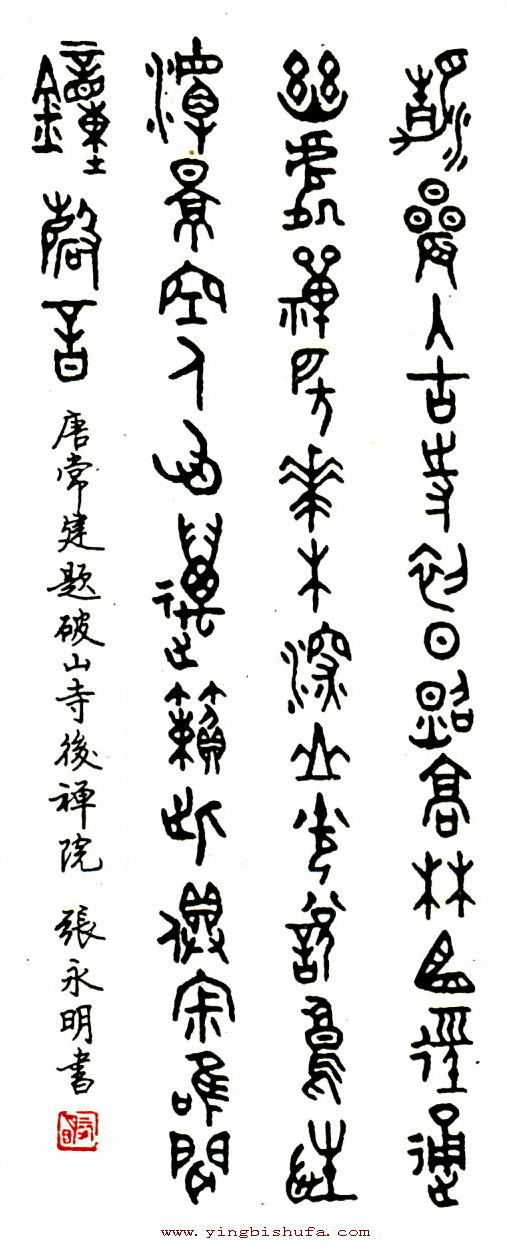 清晨入古寺初日照高林曲徑通
幽處禪房花木深山光說鳥性
潭景空人心萬籟此俱寂唯聞
鐘磬音 唐常建題破山寺後禪院 張永明書
www.yingbishufa.com